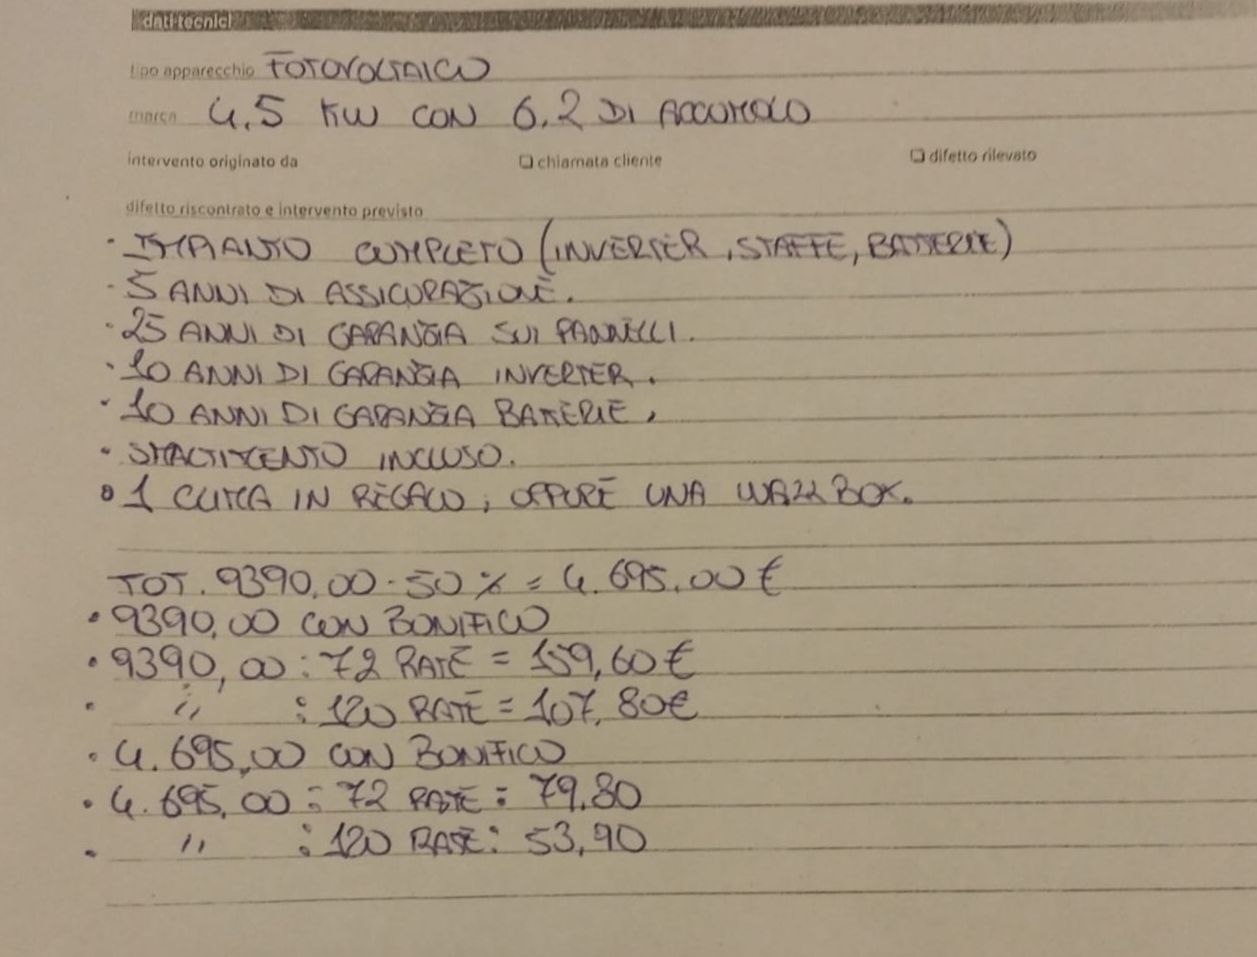 dati tecnici
tipo apparecchio FOTOVOLTAICO
marca 4,5 KW CON 6.2 DI ACCUMOLO
intervento originato da ❑ chiamata cliente ❑ difetto rilevato
difetto riscontrato e intervento previsto
· IMPIANTO COMPLETO (INVERTER, STAFFE, BATTERIE)
· 5 ANNI DI ASSICURAZIONE.
· 25 ANNI DI GARANZIA SUI PANNELLI.
· 10 ANNI DI GARANZIA INVERTER.
· 10 ANNI DI GARANZIA BATTERIE,
· SMALTIMENTO INCLUSO.
· 1 CLIMA IN REGALO, OPPURE UNA WALL BOX.
TOT. 9390,00 - 50 % = 4.695,00 €
· 9390,00 CON BONIFICO
· 9390,00 : 72 RATE = 159,60 €
· " : 120 RATE = 107,80 €
· 4.695,00 CON BONIFICO
· 4.695,00 : 72 RATE = 79,80
· " : 120 RATE : 53,90